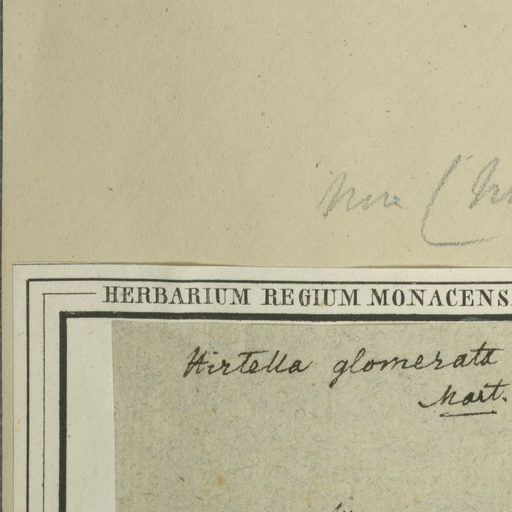 HERBARIUM REGIUM MONACENS
Hirtella glomerata
Mart.